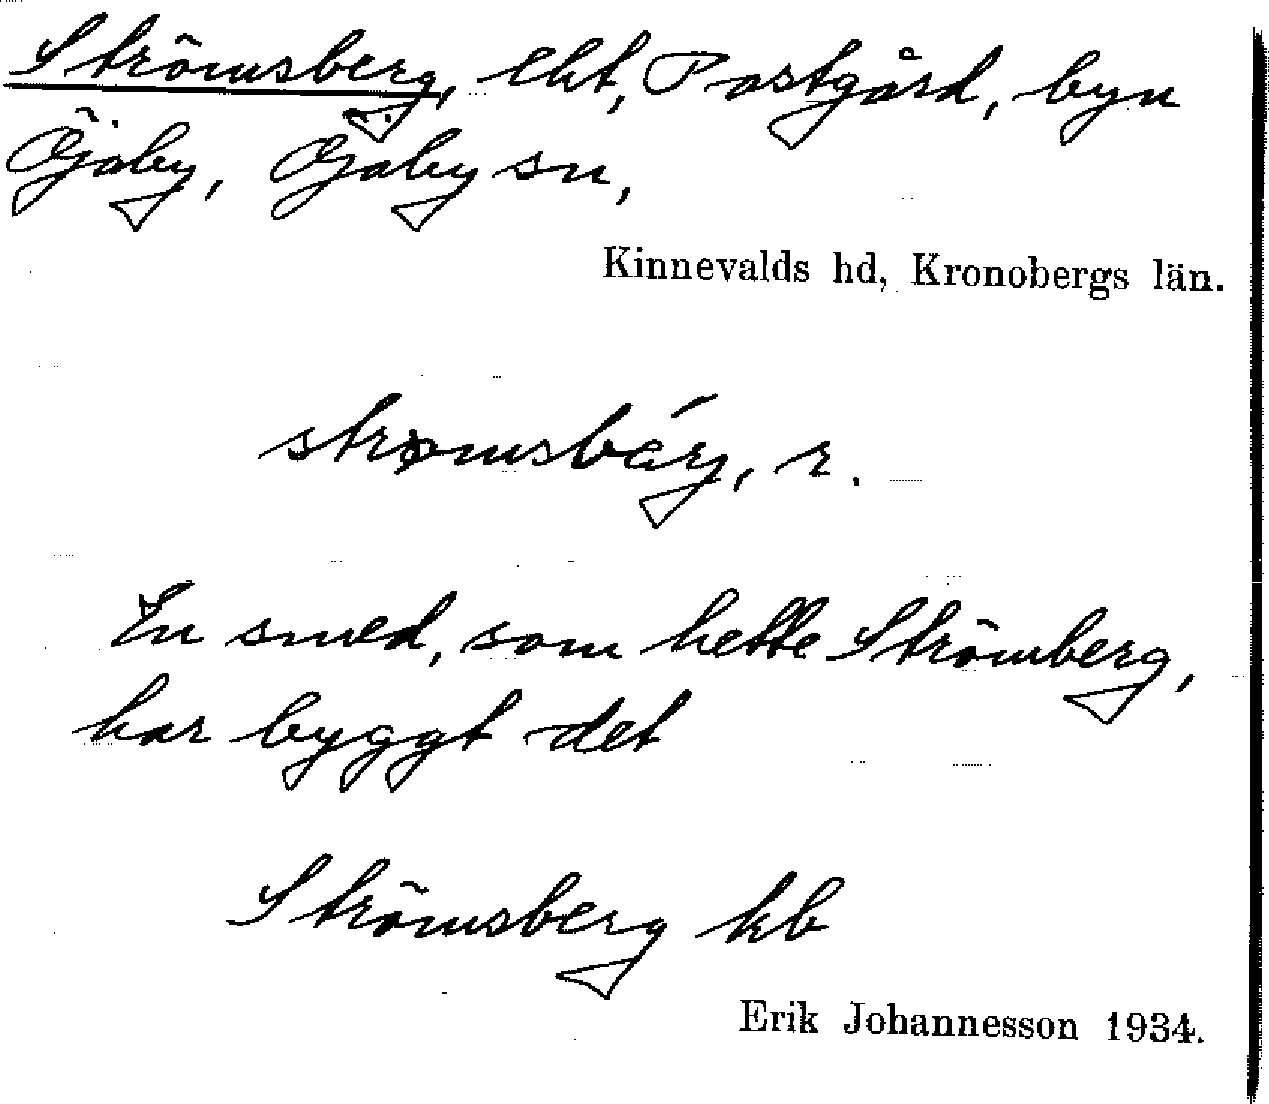 Strömsberg, lht, Postgård, byn
Öjaby, Öjaby sn,
Kinnevalds hd, Kronobergs län.
strømsbárj, r.
En smed, som hette Strömberg,
har byggt det
Strömsberg kb
Erik Johannesson 1934.